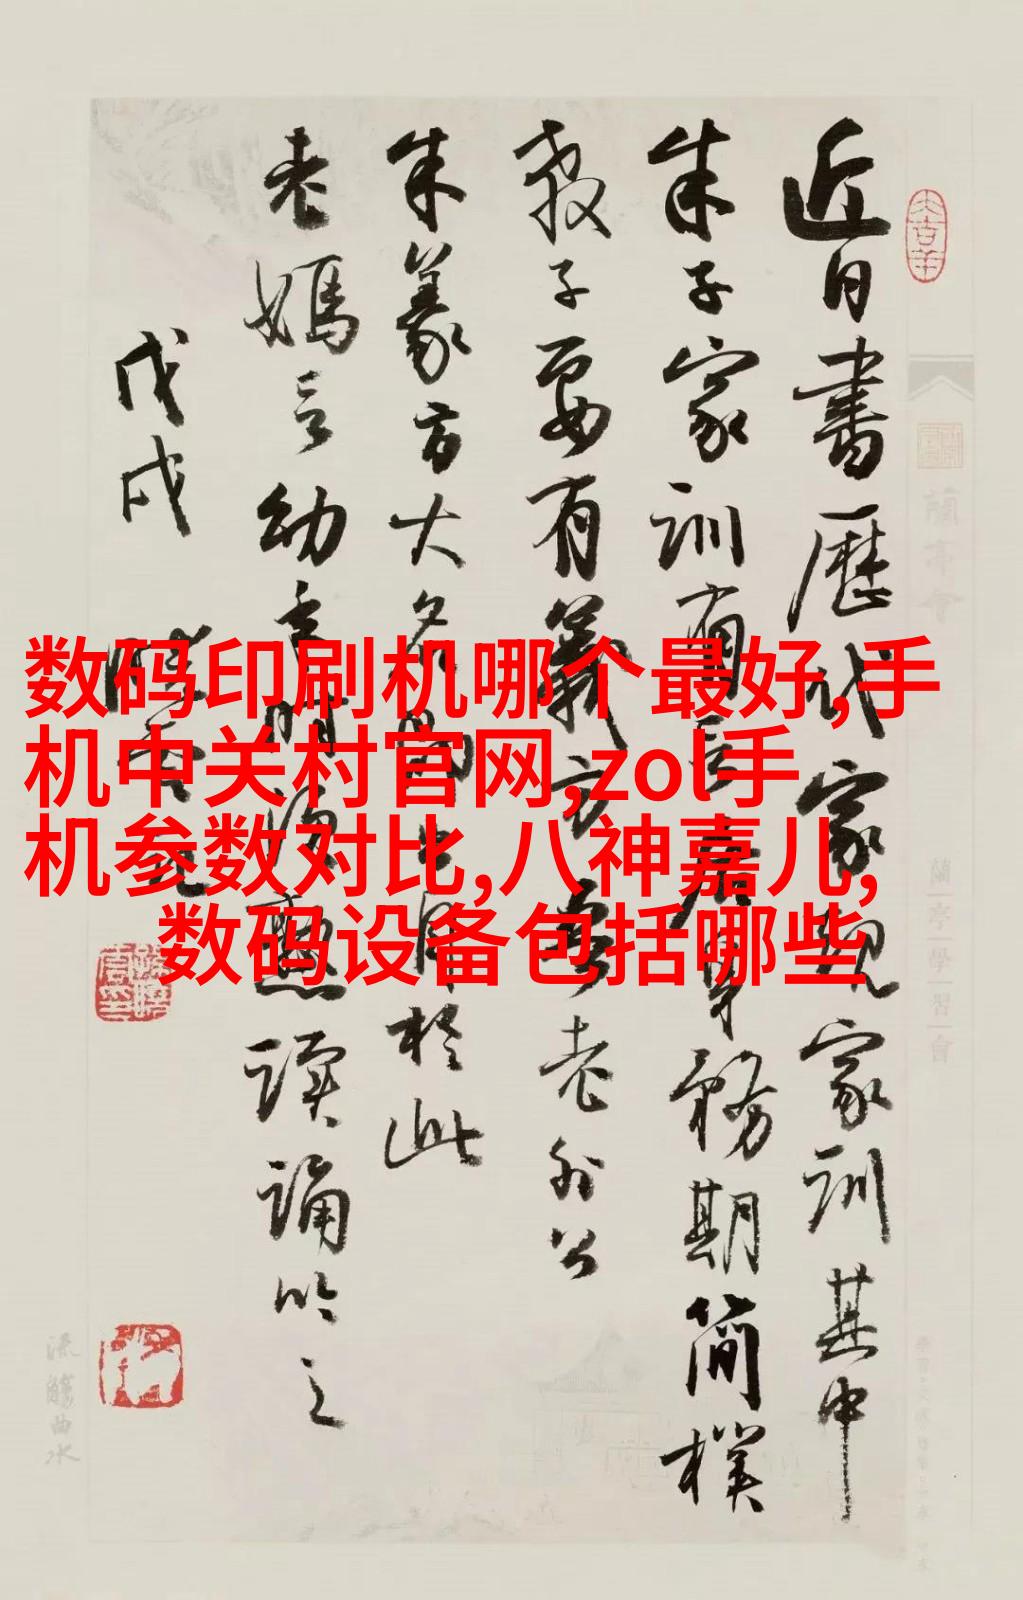 近日書歷代家規家訓其中
朱子家訓有言居身務期簡樸
教子要有義方 老外公
朱義方大名 出源於此
老媽言幼 熟讀誦吟之
戊戌
数码印刷机哪个最好,手
机中关村官网,zol手
机参数对比,八神嘉儿,
数码设备包括哪些
蘭亭會
蘭亭學習會
流觴曲水